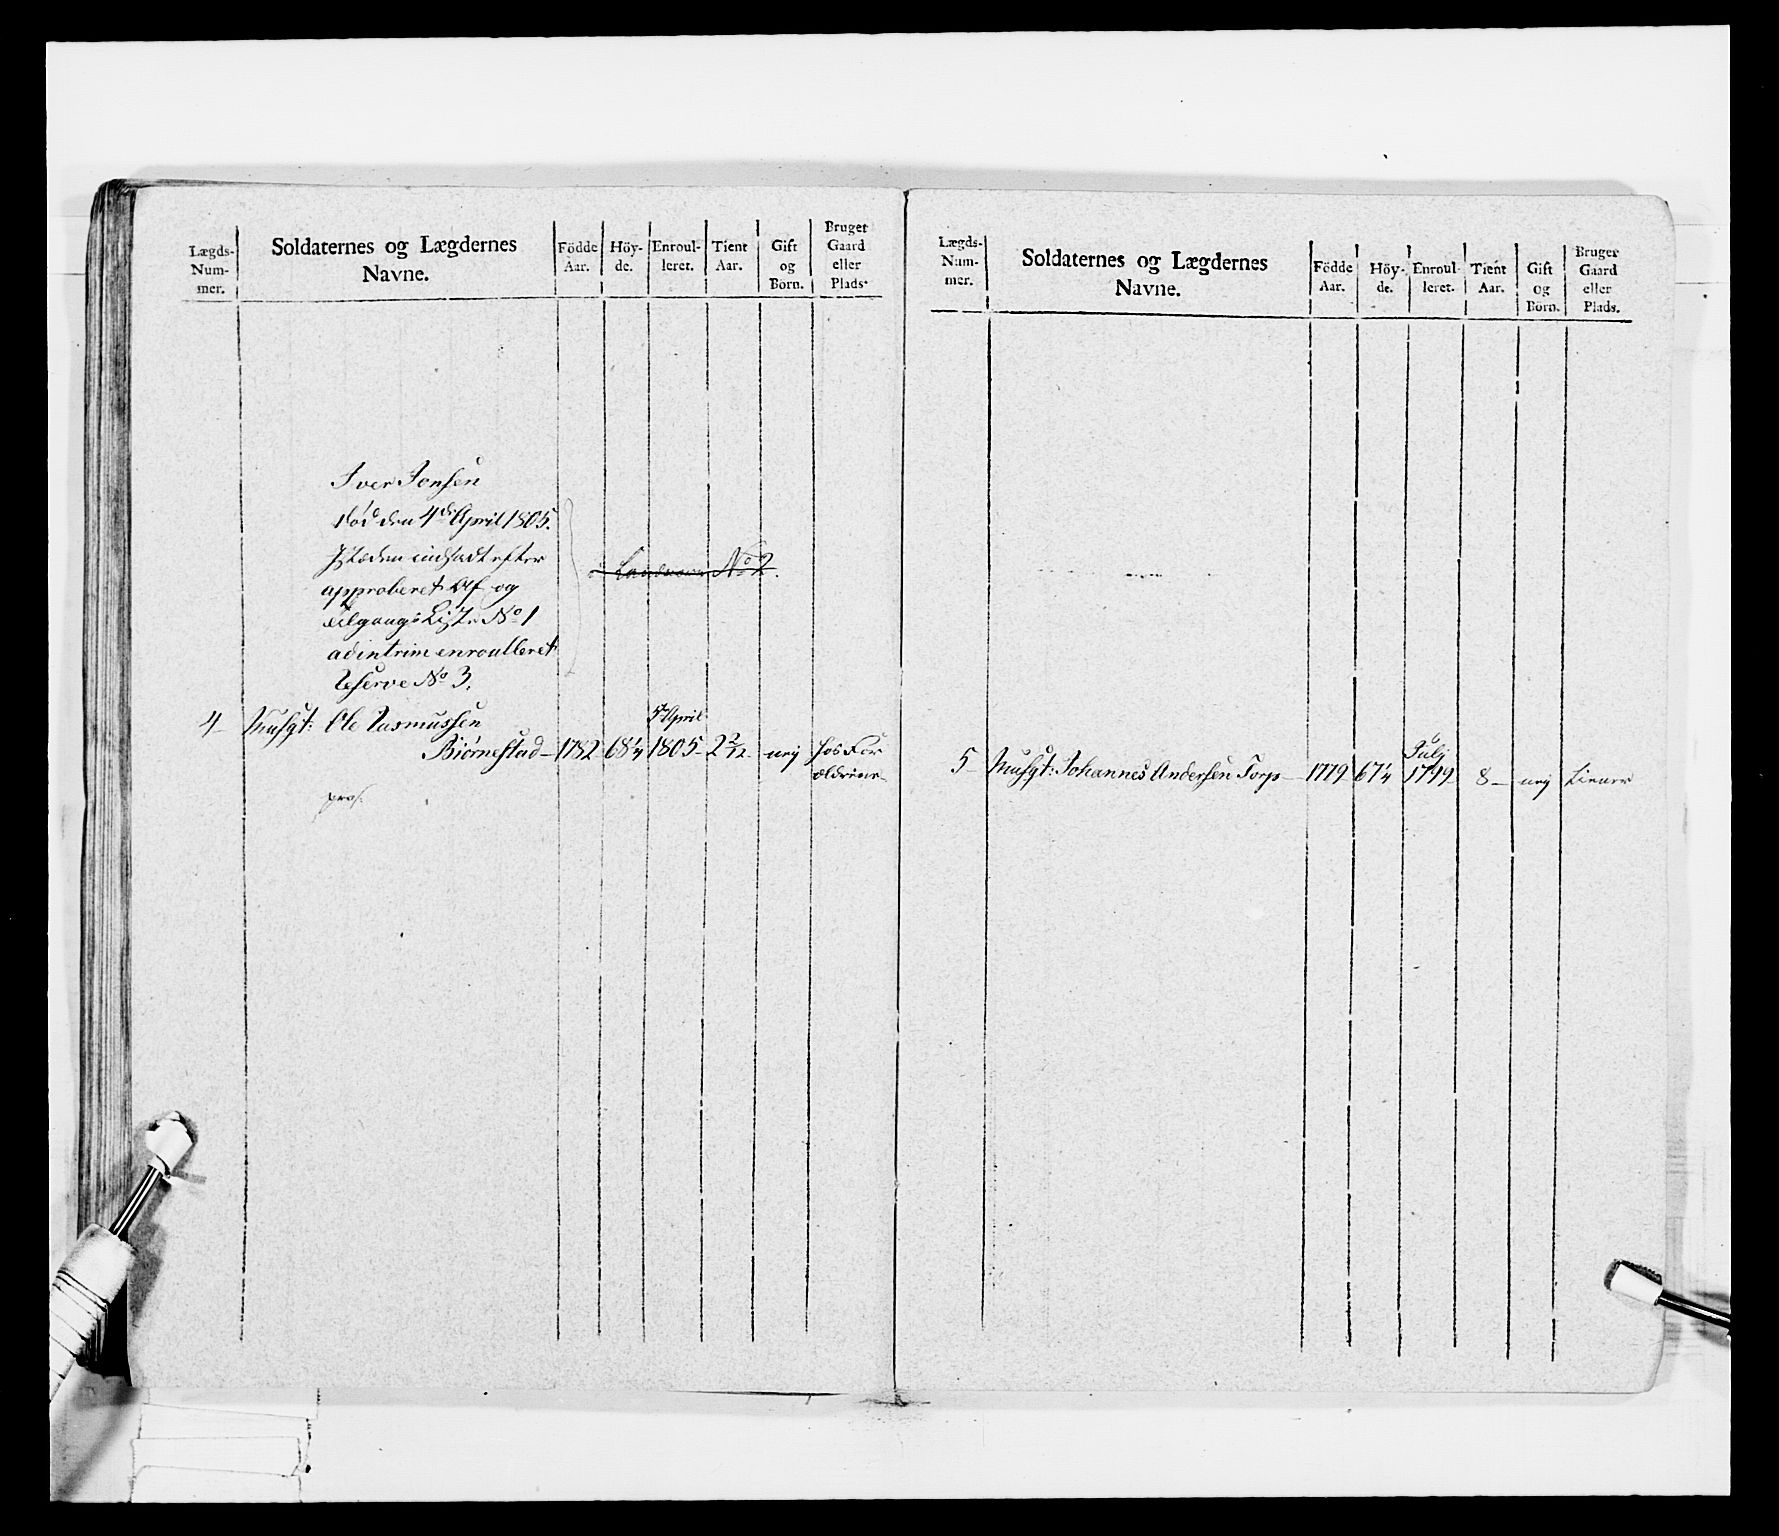 Lægds-
Num-
mer.
Soldaternes og Lægdernes
Navne.
Födde
Aar.
Höy-
de.
Enroul-
leret.
Tient
Aar.
Gift
og
Börn.
Bruger
Gaard
eller
Plads.
Iver Jonsen
død den 4de April 1805.
I støden indsadt efter
approberet Af og
tilgangs Liste No 1
ad intrim enroulleret
Reserve No 3.
Landværn No 2.
4 Musqt: Ole Rasmussen 5te April
Biørnestad 1782 68¼ 1805 2 2/12 nej hos For
ældrene
Lægds-
Num-
mer.
Soldaternes og Lægdernes
Navne.
Födde
Aar.
Höy-
de.
Enroul-
leret.
Tient
Aar.
Gift
og
Börn.
Bruger
Gaard
eller
Plads.
Julj
5 Musqt: Johannes Andersen Torp 1779 67¼ 1799 8 nej tiener